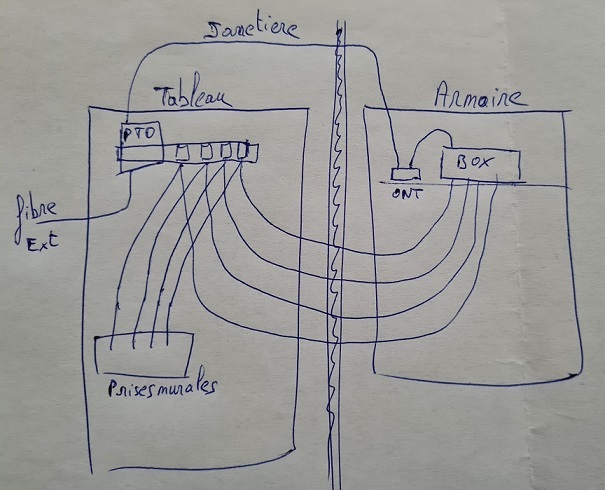 Jarretiere
Tableau
Armoire
PTO
BOX
ONT
fibre
Ext
Prises murales